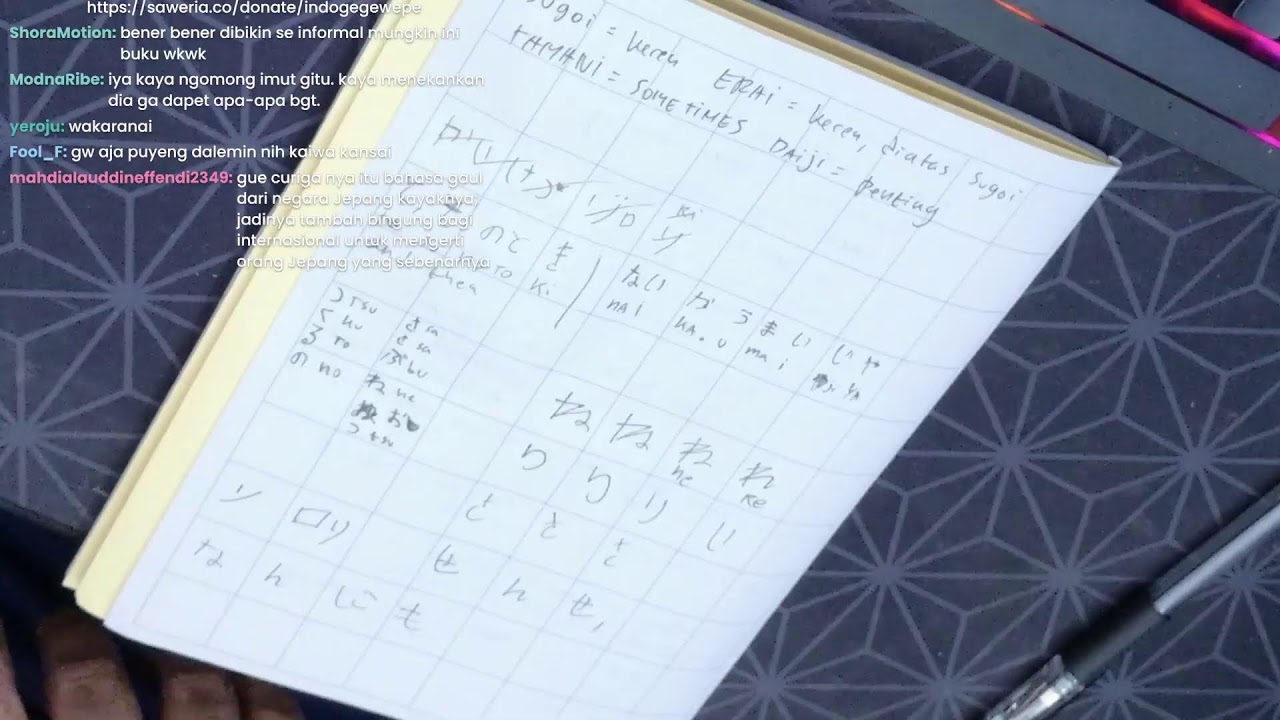 https://saweria.co/donate/indogegewepe
ShoraMotion: bener bener dibikin se informal mungkin ini
buku wkwk
ModnaRibe: iya kaya ngomong imut gitu. kaya menekankan
dia ga dapet apa-apa bgt.
yeroju: wakaranai
Fool_F: gw aja puyeng dalemin nih kaiwa kansai
mahdialauddineffendi2349: gue curiga nya itu bahasa gaul
dari negara Jepang kayaknya,
jadinya tambah bingung bagi
internasional untuk mengerti
orang Jepang yang sebenarnya
Sugoi = keren
ERAi = keren, diatas sugoi
TAMANi = SOMETIMES
DAiji = penting
のと き
TO Ki
ない か う ま い じ や
nAi KA . U mA i Ji YA
つ TSU
く KU
る
の no
き
さ sa
ぶ bu
ね ne
お
つ tsu
ね ね ね れ
ne Re
り り り い
と と と
ツ ロリ
せ ん せ,
な ん に も